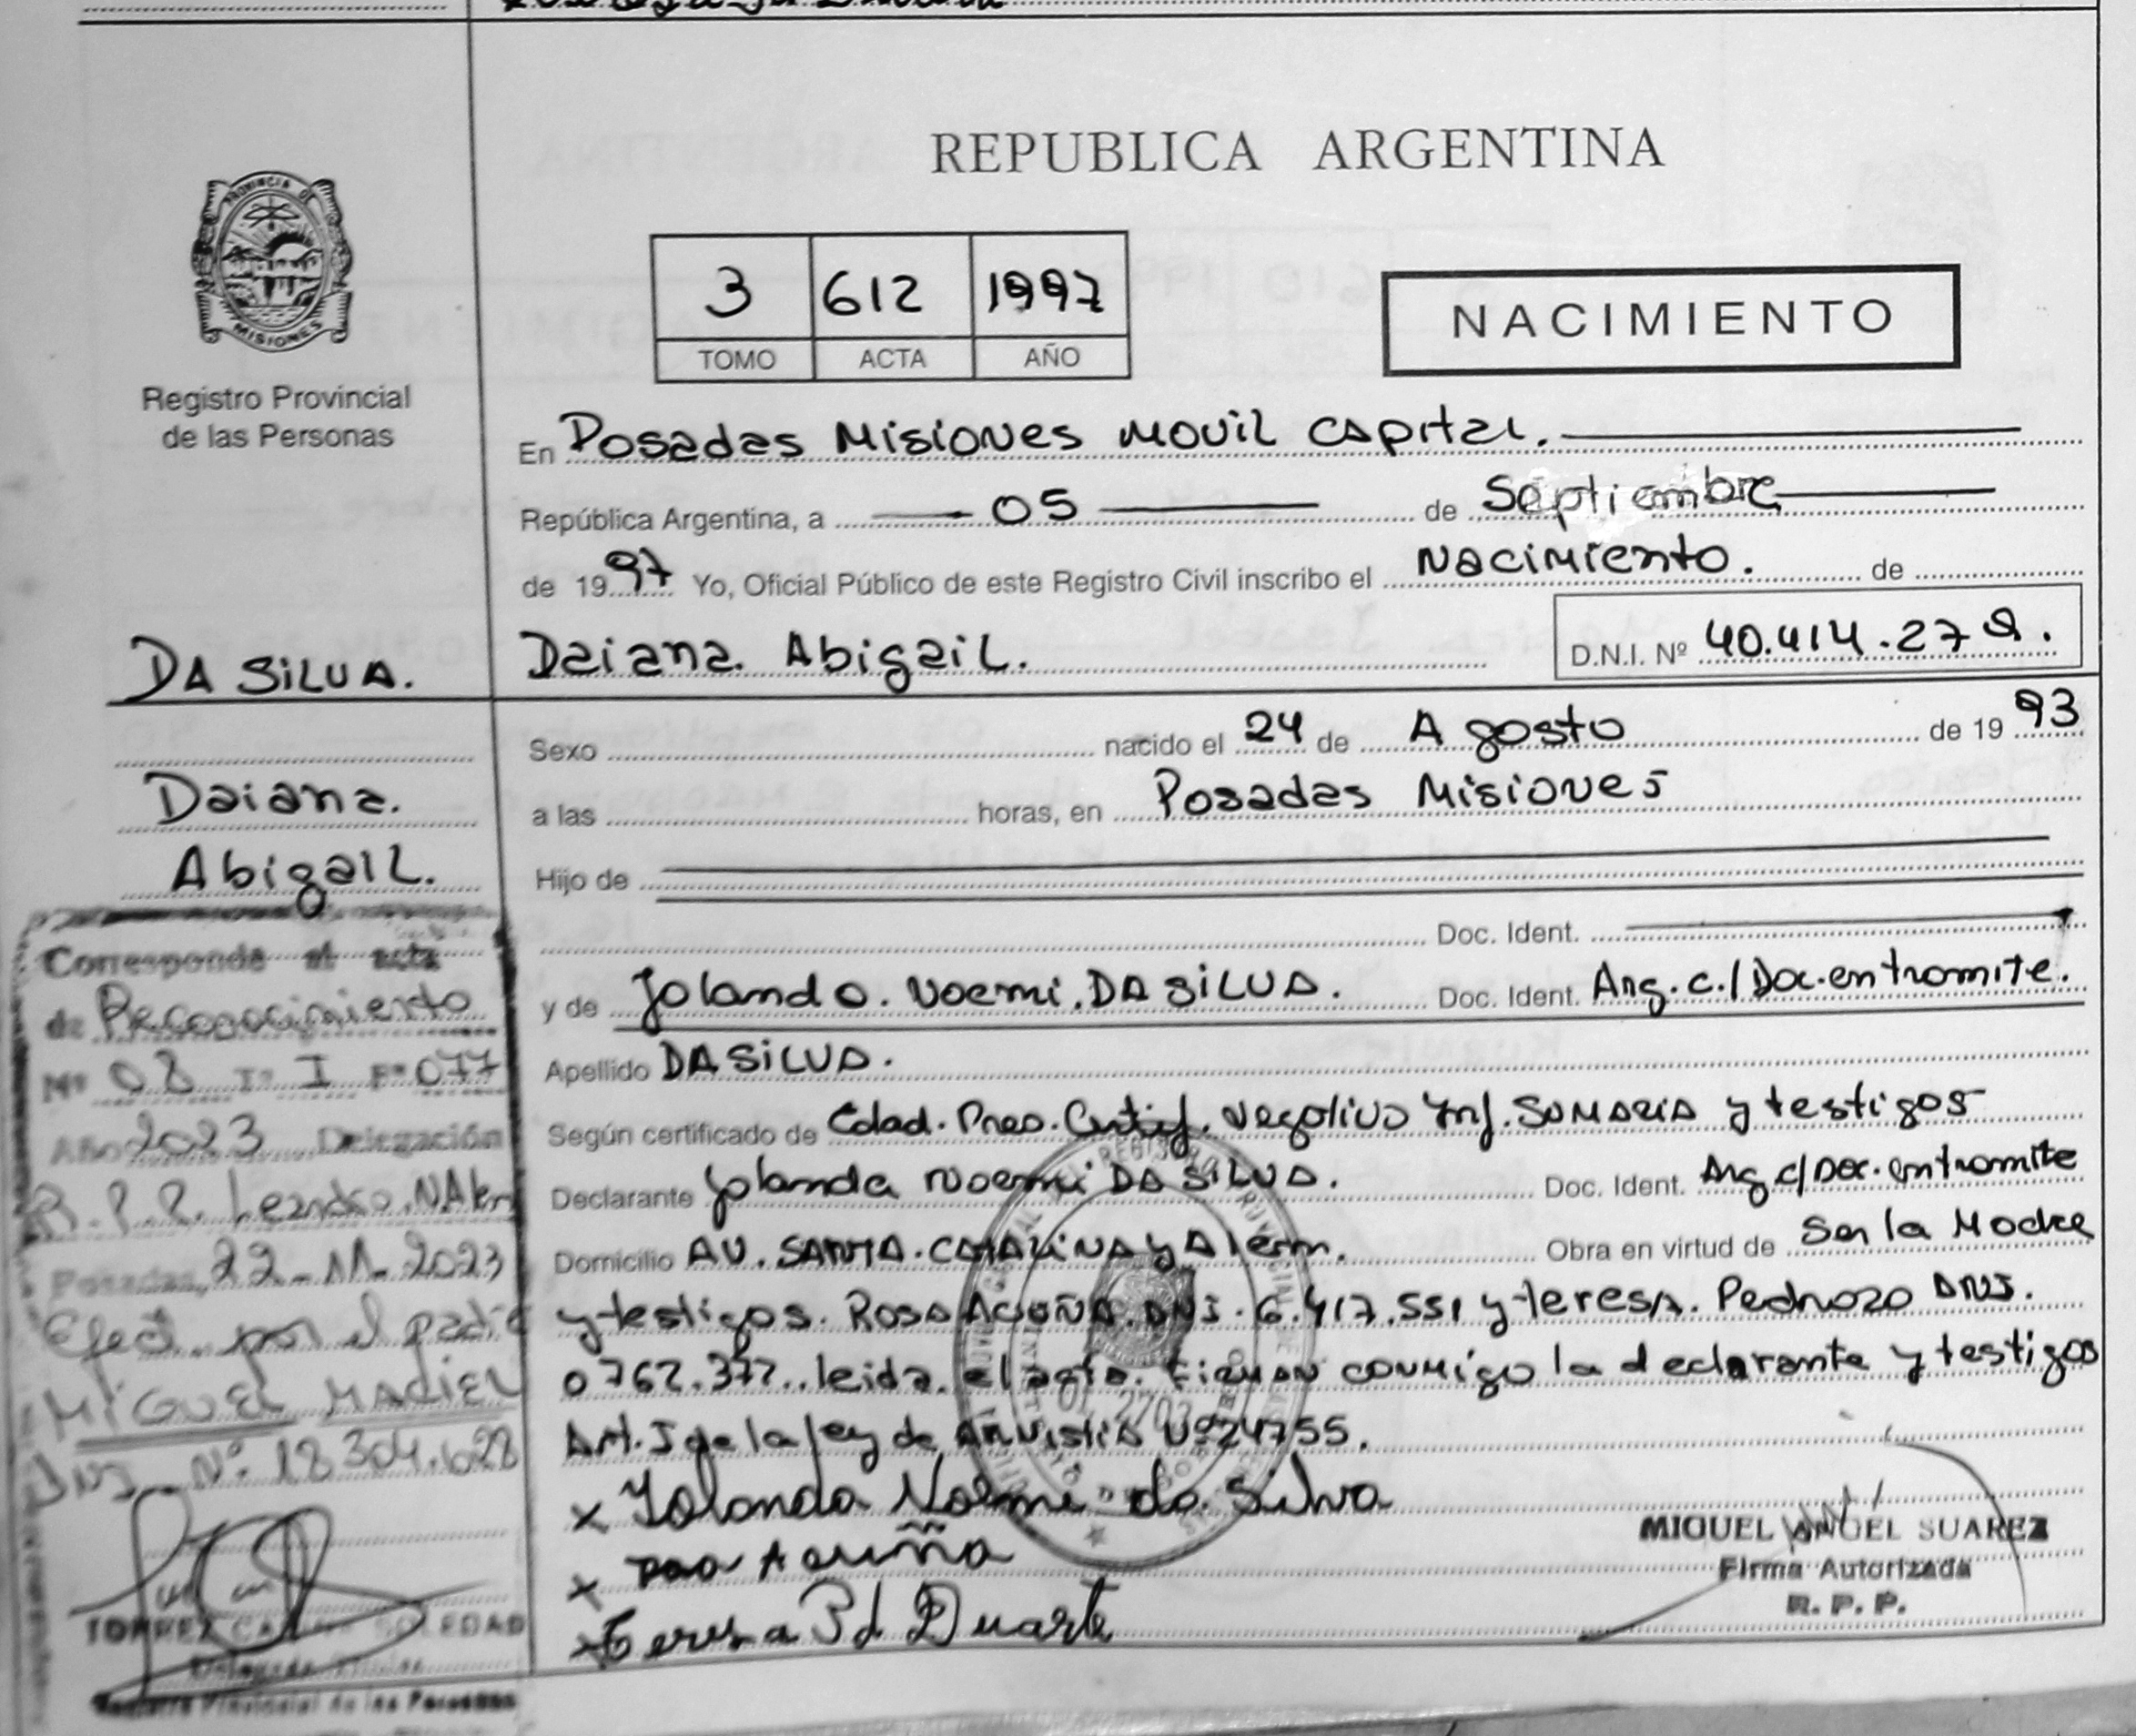 REPUBLICA ARGENTINA
PROVINCIA DE
MISIONES
Registro Provincial
de las Personas
3 612 1997
TOMO ACTA AÑO
NACIMIENTO
En Posadas Misiones Movil Capital.
República Argentina, a 05 de Septiembre
de 1997 Yo, Oficial Público de este Registro Civil inscribo el Nacimiento. de
DA SILVA. Daiana Abigail. D.N.I. Nº 40.414.279.
Sexo nacido el 24 de Agosto de 1993
Daiana. a las horas, en Posadas Misiones
Abigail. Hijo de
Doc. Ident.
y de Jolanda. Noemi. DA SILVA. Doc. Ident. Arg. c/Doc. entromite.
Apellido DA SILVA.
Según certificado de Edad. Pres. Certif. Negativo Inf. SUMARIA y testigos
Declarante Jolanda Noemi DA SILVA. Doc. Ident. Arg c/Doc. entromite
Domicilio AV. SANTA. CATALINA y Alem. Obra en virtud de Ser la Madre
y testigos. ROSA ACUÑA. DNI. 6.417.551 y Teresa. Pedrozo DNI.
0762.377.. leida. el acta. firman conmigo la declarante y testigos
Art. de la ley de Amnistia Nº 24755.
x Jolanda Noemi da Silva
x Acuña
x Teresa Pd Duarte
MIGUEL ANGEL SUAREZ
Firma Autorizada
R. P. P.
Corresponde al acta
de Reconocimiento
Nº 08 Tº I Fº 077
Año 2023 Delegación
R.P.P. Leandro N. Alem
Posadas, 22-11-2023
Efect. por el padre
MIGUEL MACIEL
DNI Nº 18304.628
TORREZ SOLEDAD
Registro Provincial de las Personas